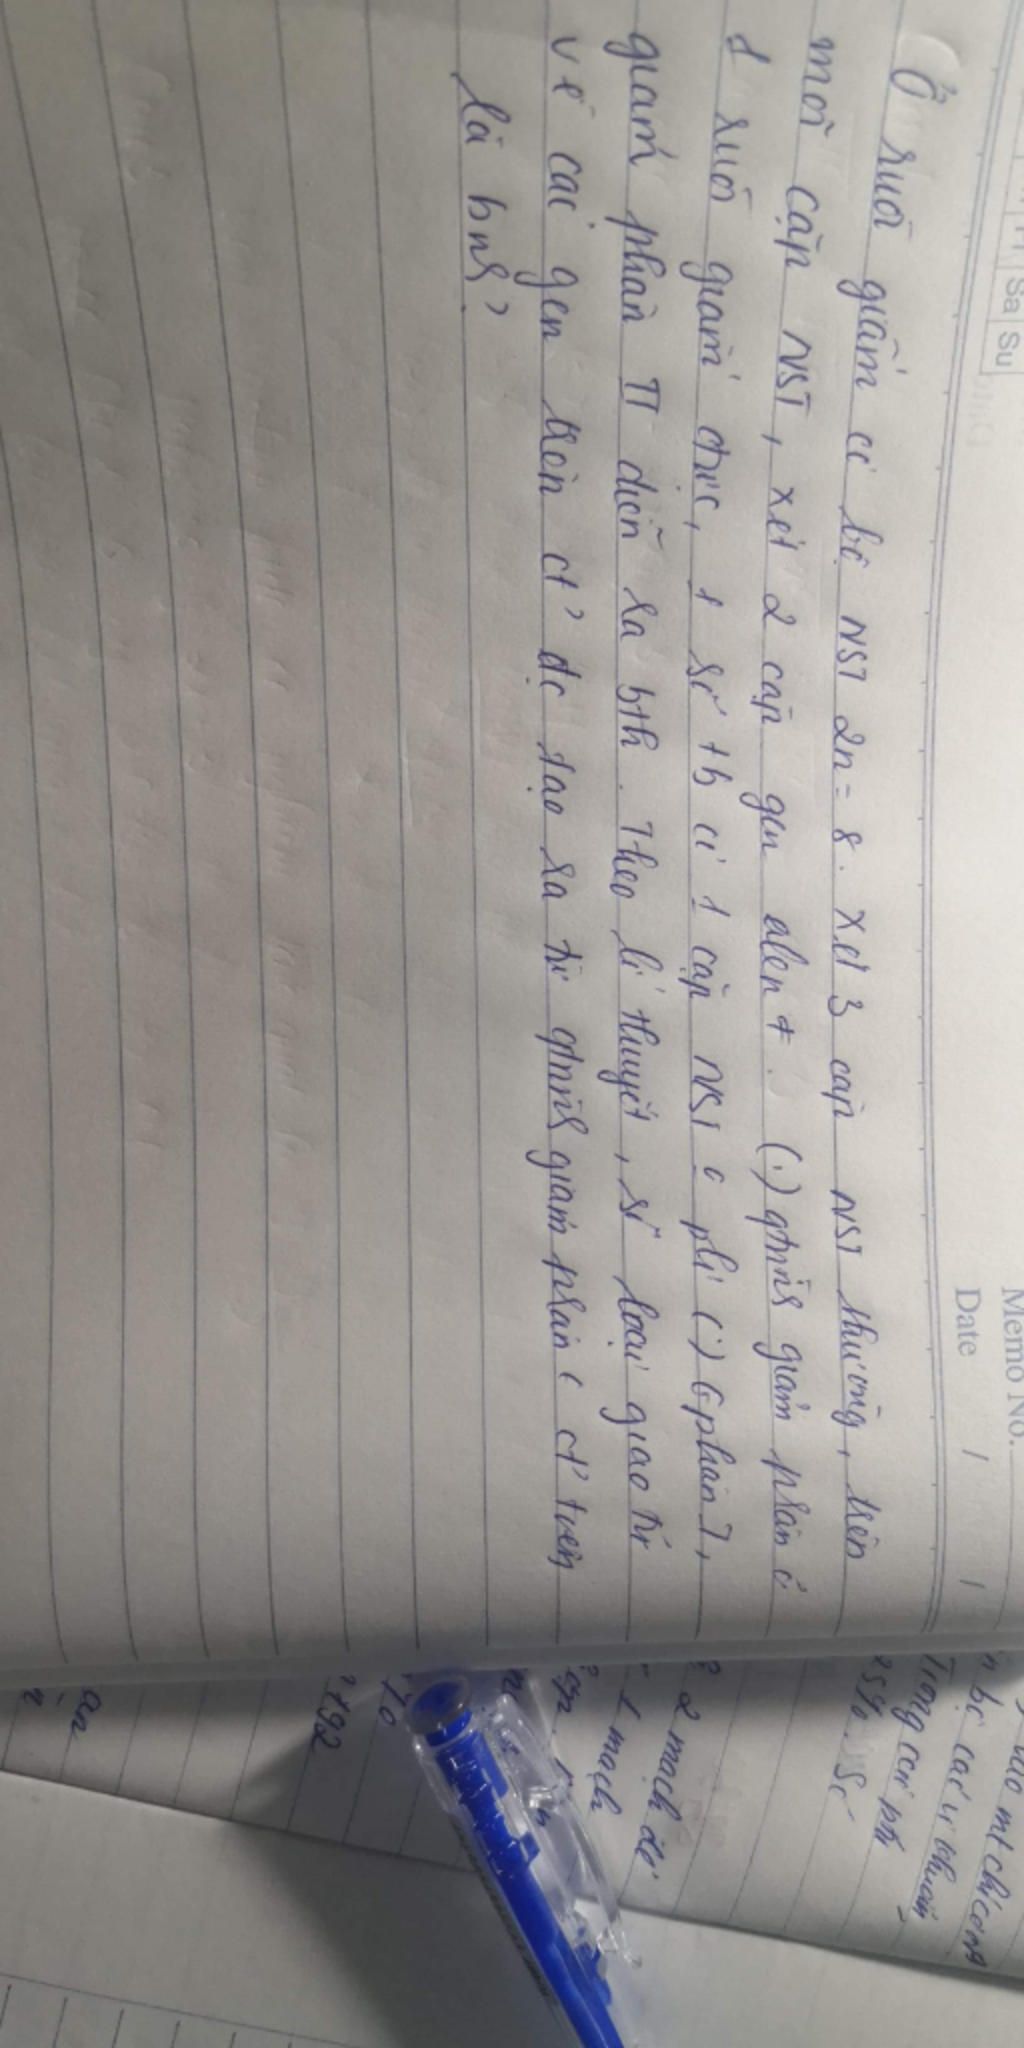 Memo No.
Date / /
Sa Su
Ở ruồi giấm có bộ NST 2n = 8. Xét 3 cặp NST thường, trên
mỗi cặp NST, xét 2 cặp gen alen +. (.) qtrình giảm phân ở
1 ruồi giấm đực, 1 số tb có 1 cặp NST o pli (.) Gphân I,
giảm phân II diễn ra bth. Theo lí thuyết, số loại giao tử
về các gen trên ct' đc tạo ra từ qtrình giảm phân c ct' trên
là bn?
2 mạch đó
1 mạch
192